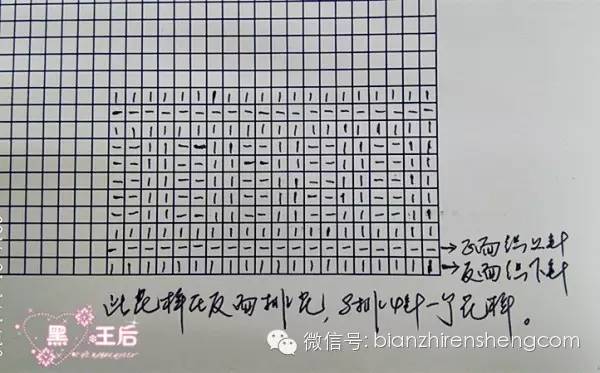 →正面织上针
→反面织下针
此花样在反面排花，8排4针一个花样。
黑 王后
微信号: bianzhirensheng.com